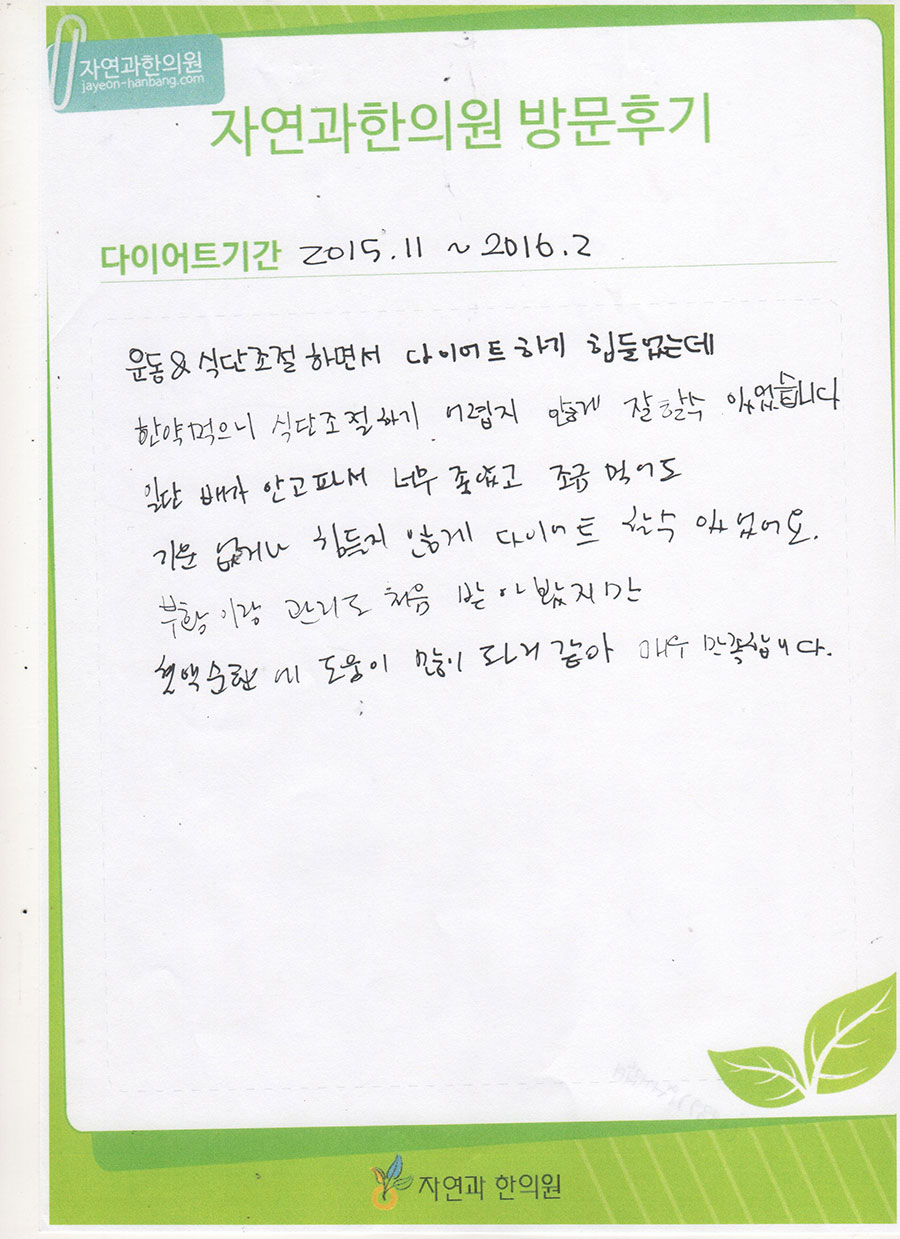 자연과한의원
jayeon-hanbang.com
자연과한의원 방문후기
다이어트기간 2015.11 ~ 2016.2
운동&식단조절 하면서 다이어트하기 힘들었는데
한약먹으니 식단조절하기 어렵지 않게 잘 할수 있었습니다
일단 배가 안고파서 너무 좋았고 조금 먹어도
기운 없거나 힘들지 않게 다이어트 할수 있었어요.
부항이랑 관리도 처음 받아봤지만
혈액순환에 도움이 많이 되거 같아 매우 만족합니다.
자연과 한의원